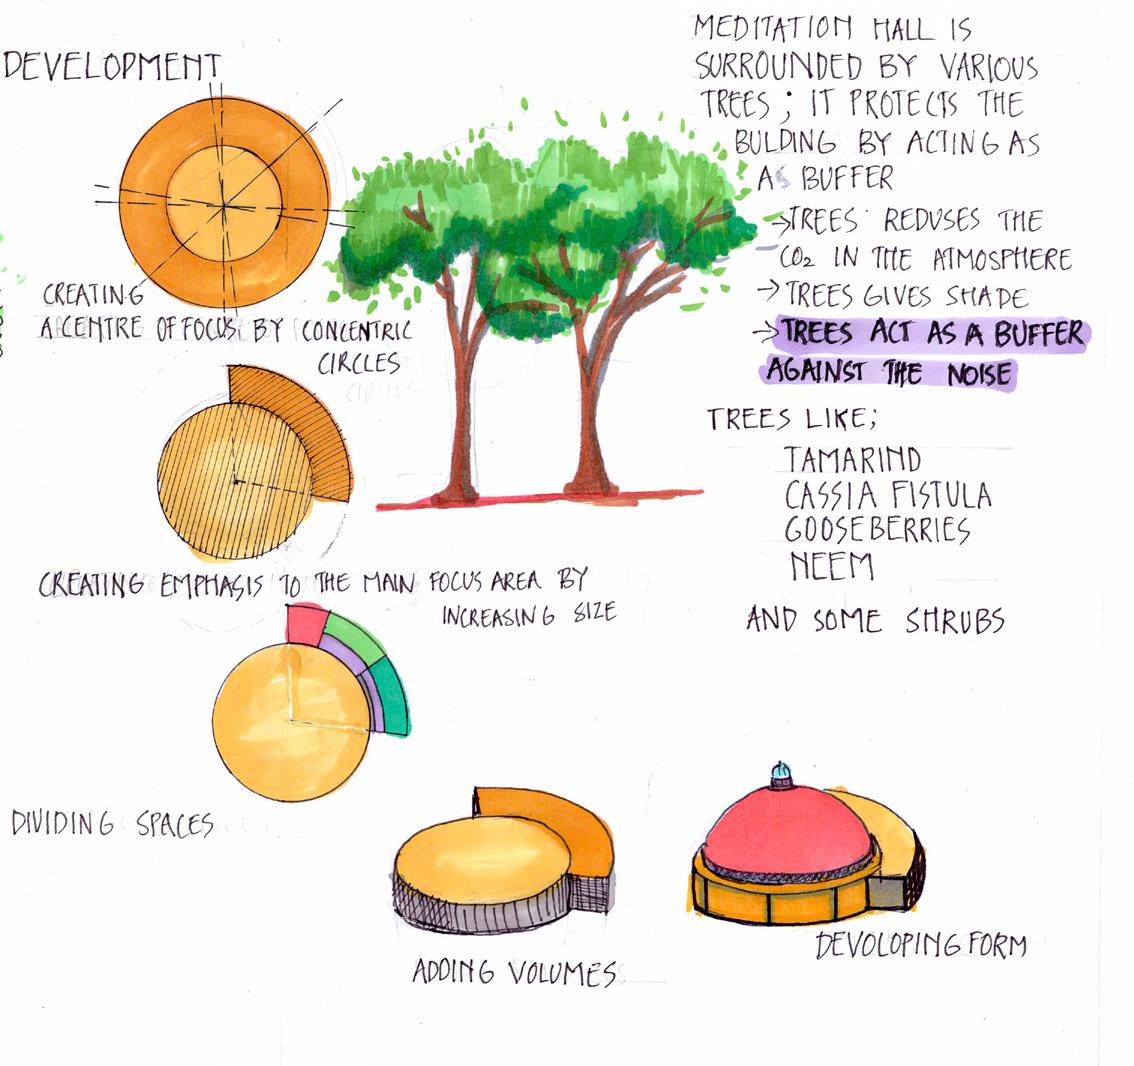 DEVELOPMENT
CREATING
A CENTRE OF FOCUS BY CONCENTRIC
CIRCLES
CREATING EMPHASIS TO THE MAIN FOCUS AREA BY
INCREASING SIZE
DIVIDING SPACES
ADDING VOLUMES
DEVOLOPING FORM
MEDITATION HALL IS
SURROUNDED BY VARIOUS
TREES ; IT PROTECTS THE
BULDING BY ACTING AS
AS BUFFER
→ TREES REDUSES THE
CO₂ IN THE ATMOSPHERE
→ TREES GIVES SHADE
→ TREES ACT AS A BUFFER
AGAINST THE NOISE
TREES LIKE;
TAMARIND
CASSIA FISTULA
GOOSEBERRIES
NEEM
AND SOME SHRUBS